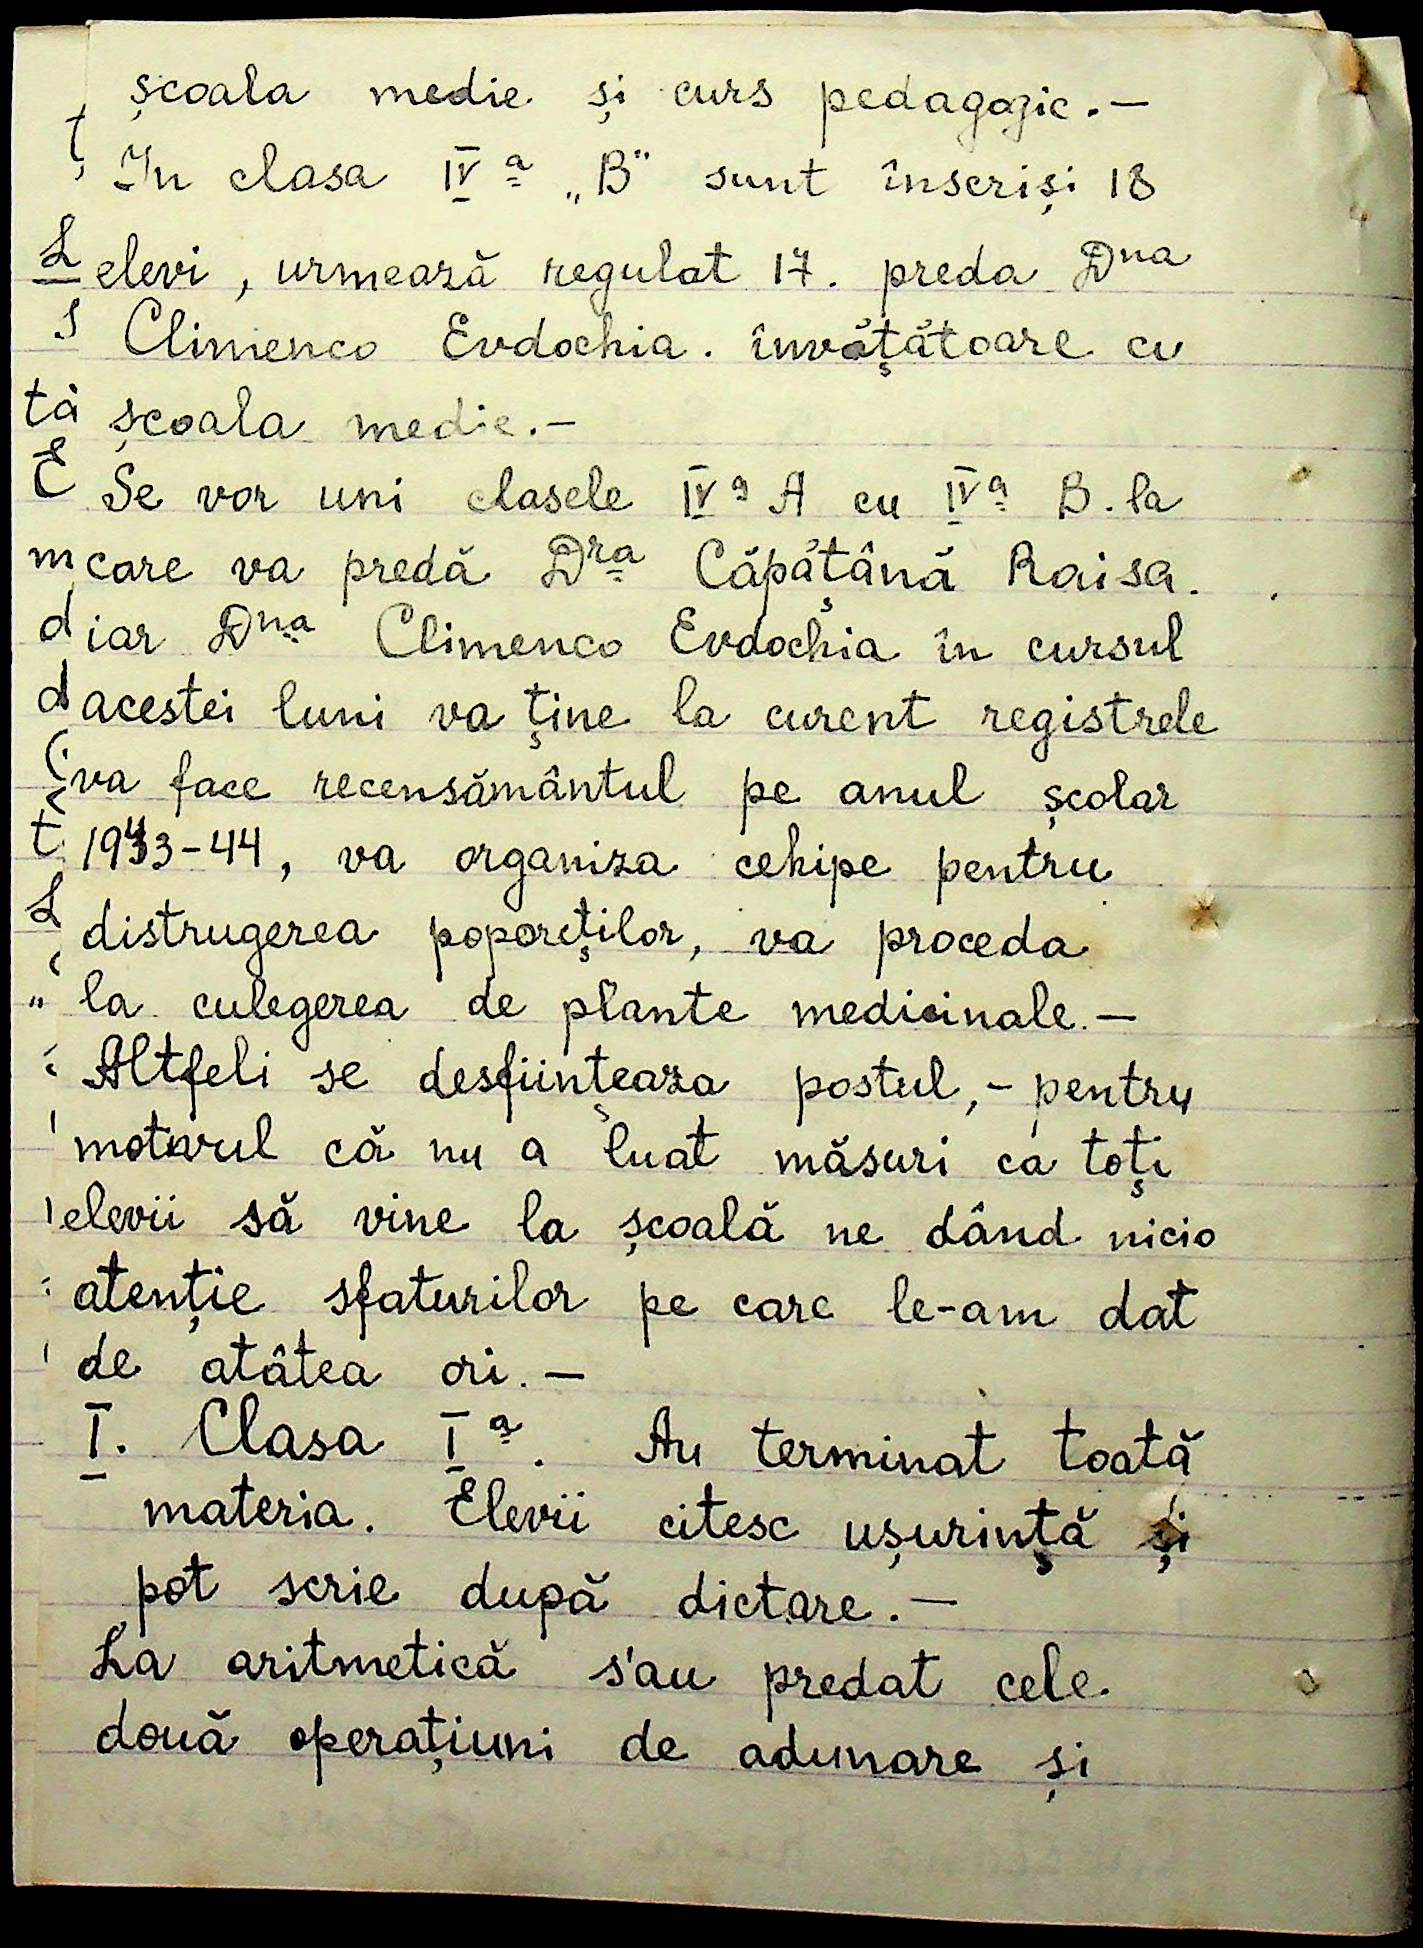 școala medie și curs pedagogic.—
In clasa IVª „B" sunt înscriși 18
elevi, urmează regulat 17. preda Dna
Climenco Evdochia. învățătoare cu
școala medie.—
Se vor uni clasele IVª A cu IVª B. la
care va predă Dra Căpățână Raisa.
iar Dna Climenco Evdochia în cursul
acestei luni va ține la curent registrele
va face recensământul pe anul școlar
1943-44, va organiza cehipe pentru
distrugerea poporeților, va proceda
la culegerea de plante medicinale.—
Altfeli se desființeaza postul,- pentru
motivul că nu a luat măsuri ca toți
elevii să vine la școală ne dând nicio
atenție sfaturilor pe care le-am dat
de atâtea ori.—
I. Clasa Iª. Au terminat toată
materia. Elevii citesc ușurință și
pot scrie după dictare.—
La aritmetică s'au predat cele
două operațiuni de adunare și